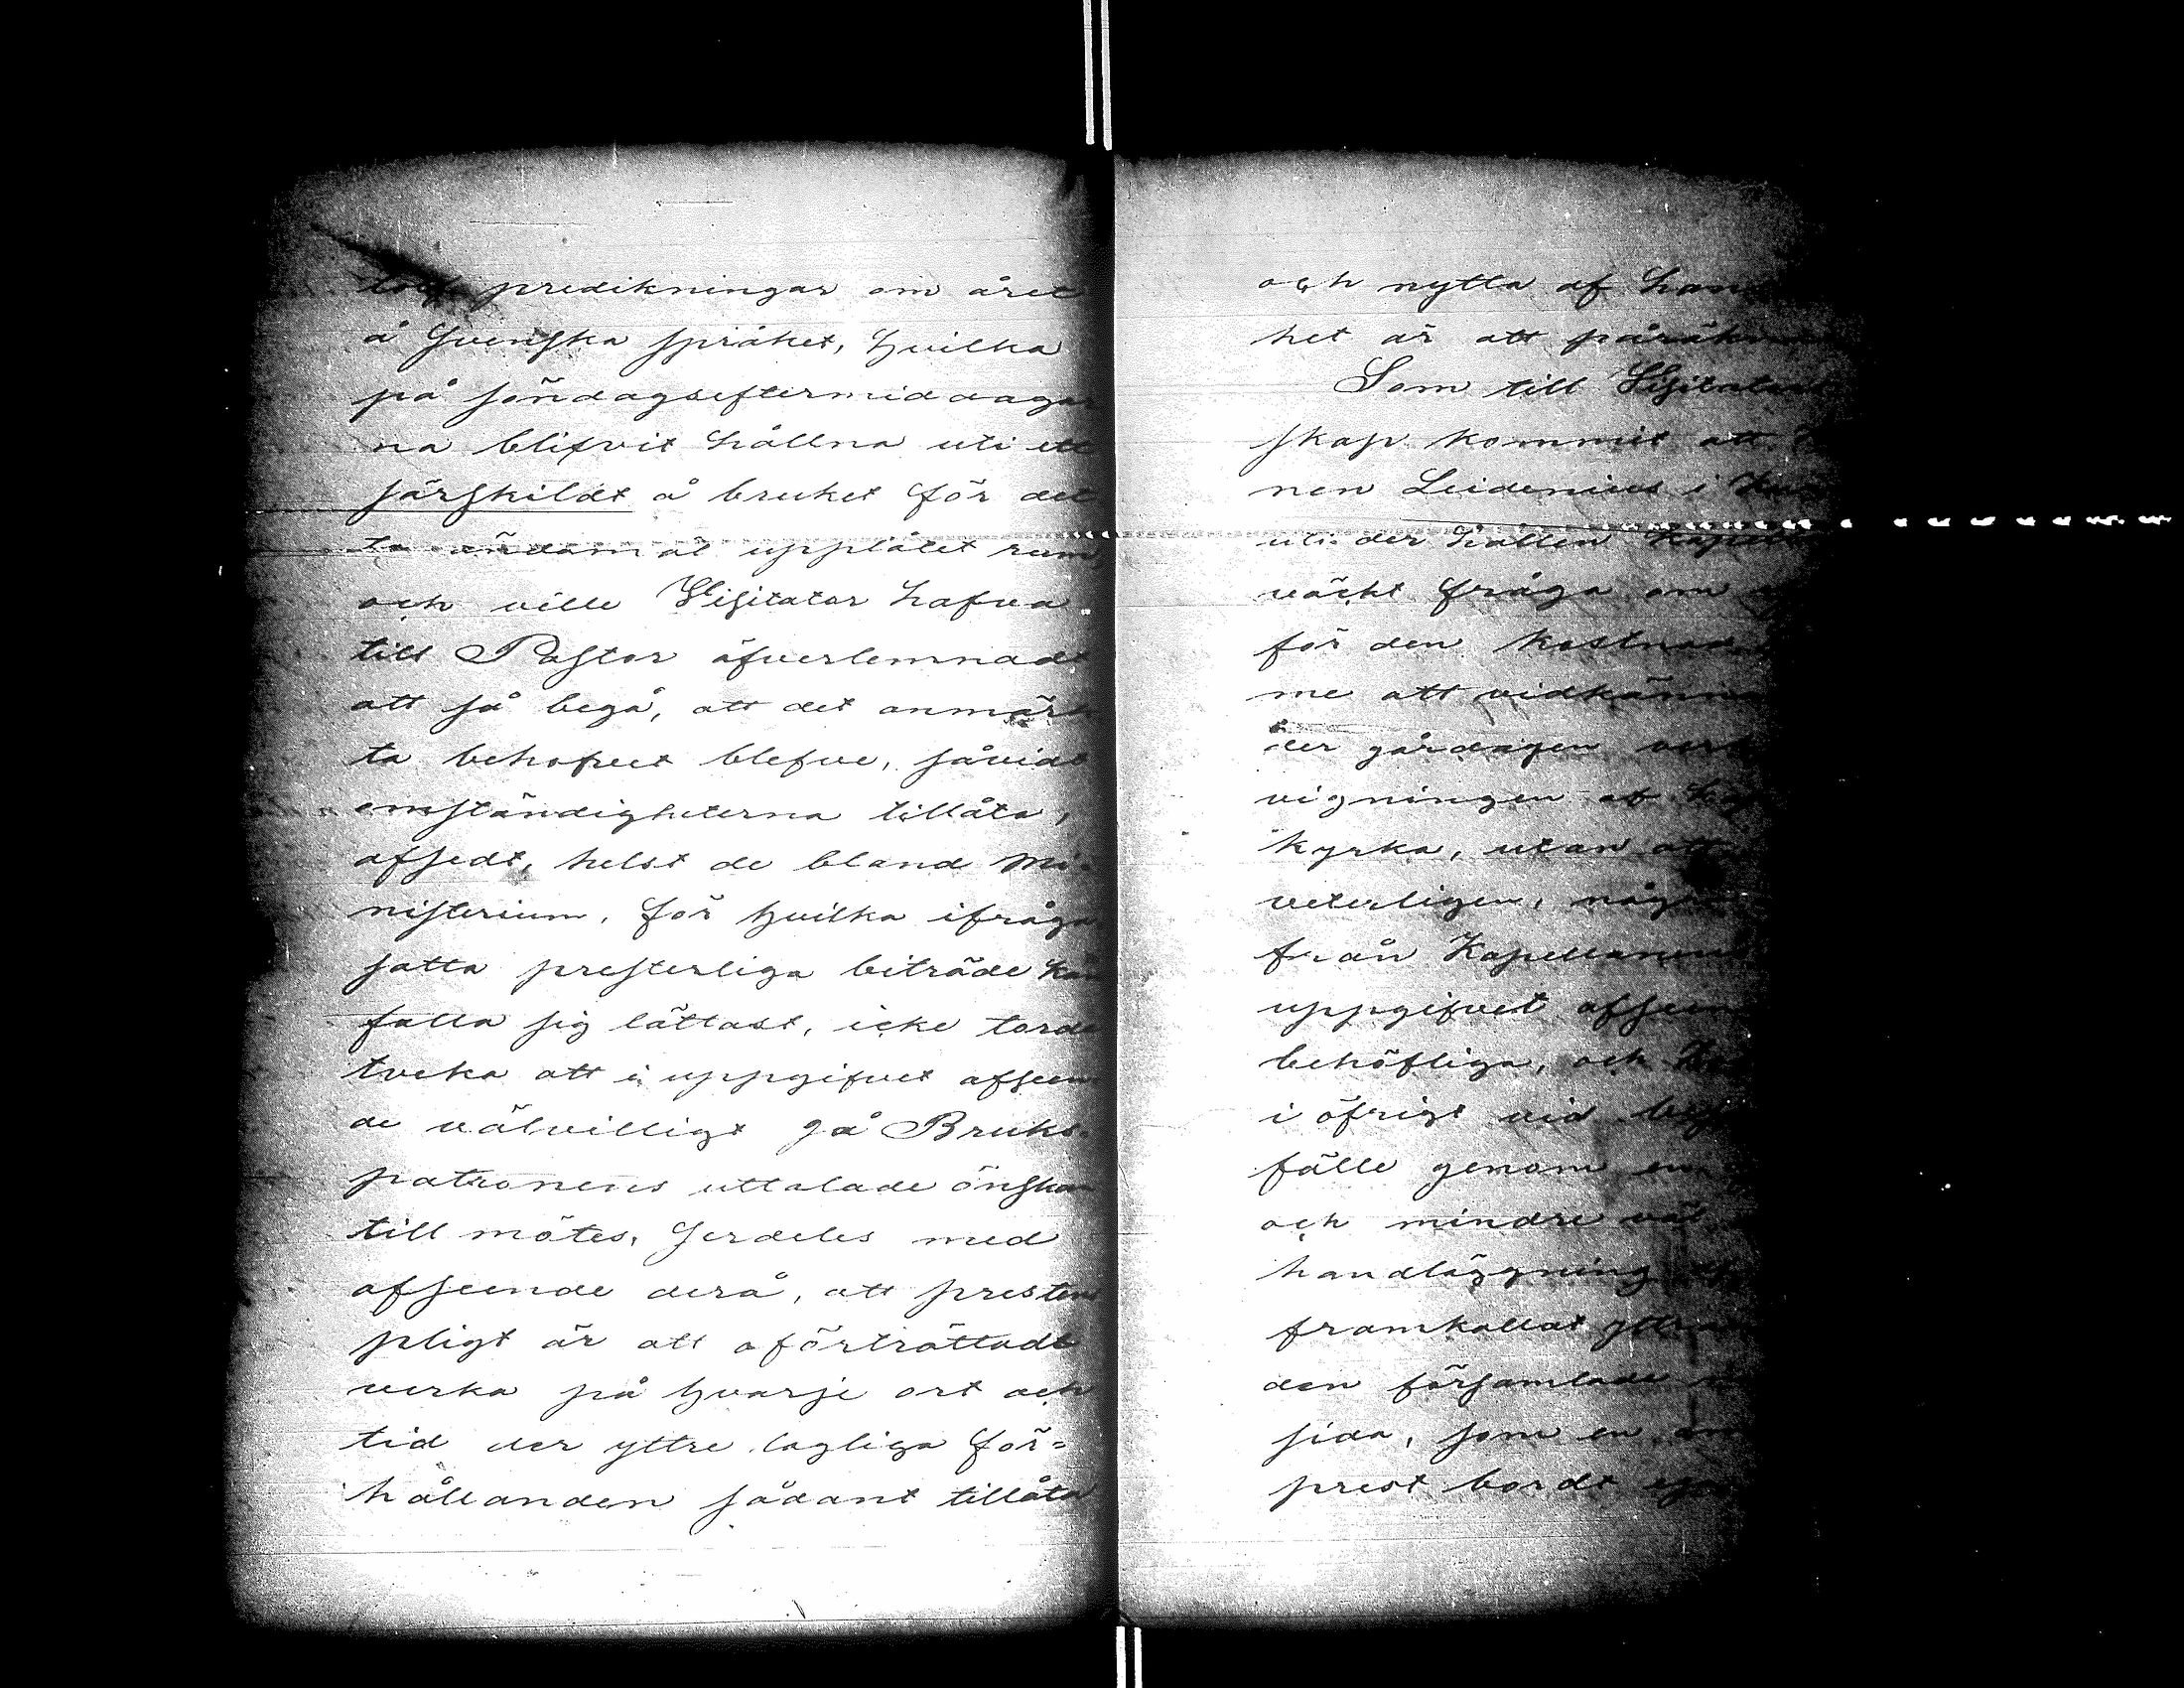 tolf predikningar om året
å Svenska språket, hvilka
på söndagseftermiddagar
na blifvit hållna uti ett
särskildt å bruket för det
ta ändamål upplåtet rum,
och ville Visitator hafva
till Pastor öfverlemnadt
att så begå, att det anmärk
ta behofvet blefve, såvidt
omständigheterna tillåta,
afsedt, helst de bland Mi-
nisterium, för hvilka ifråga
satta presterliga biträde kan
falla sig lättast, icke torde
tveka att i uppgifvet afseen
de välvilligt gå Bruks-
patronens uttalade önskan
till mötes, serdeles med
afseende derå, att presten
pligt är att oförtröttadt
verka på hvarje ort och
tid der yttre lagliga för=
hållanden sådant tillåta
och nytta af
het är att påräkna
Som till Visitators
skap kommit att
nen Leidenius i
uti der hållen
väckt fråga om
för den kostnad
me att vidkänna
der gårdagen
vigningen af
kyrka, utan att
veterligen, någon
från Kapellanens
uppgifvet afseen
behöfliga, och
i öfrigt vid
fälle genom en
och mindre väl
handläggning
framkallat yttran
den församlade
sida, som en
prest bordt